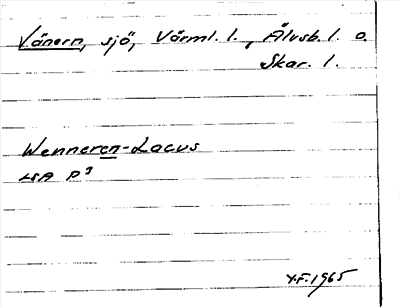 Vänern, sjö, Värml. l., Älvsb. l. o.
Skar. l.
Wenneren-Lacus
LSA P³
Y.F. 1965